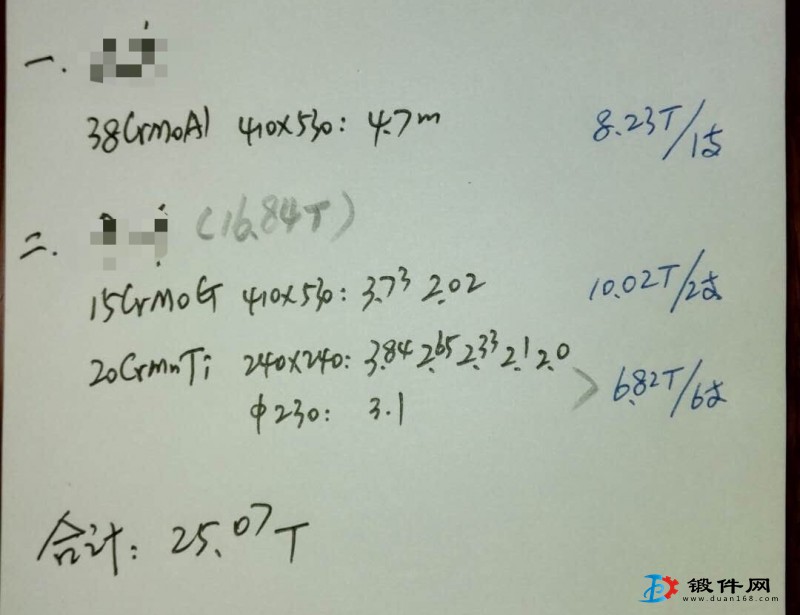 一.
38CrMoAl 410×530: 4.7m 8.23T/1支
二. (16.84T)
15CrMoG 410×530: 3.73 2.02 10.02T/2支
20CrMnTi 240×240: 3.84 2.65 2.33 2.1 2.0
φ230: 3.1 6.82T/6支
合计: 25.07T
锻件网
www.duan168.com